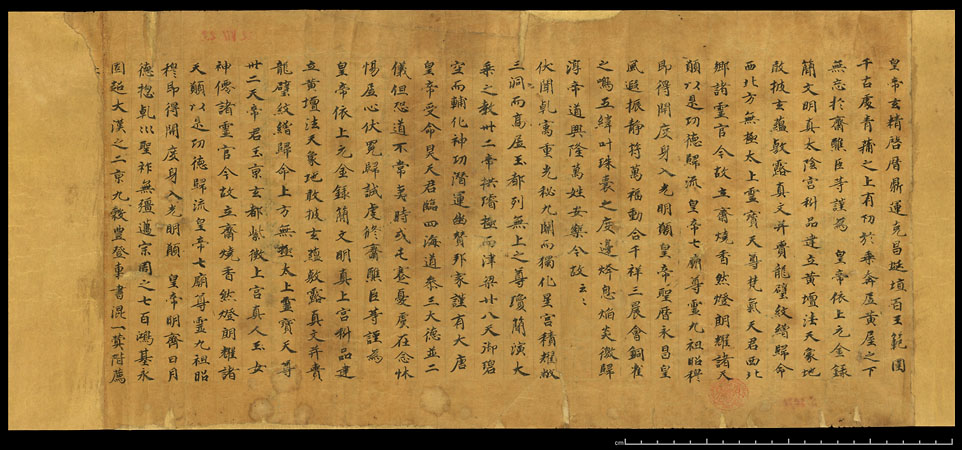 皇帝玄精啓曆鼎運克昌埏埴百王範圍
千古處青蒲之上有切於乘奔居黄屋之下
無忘於齋醮臣等謹爲 皇帝依上元金錄
簡文明真太陰宫科品建立黄壇法天象地
敷披玄蘊敷露真文并賫龍璧紋繒歸命
西北方無極太上靈寳天尊梵氣天君西北
鄉諸靈官今故立齋燒香然燈朗耀諸天
願以是功德歸流 皇帝七廟尊靈九祖昭穆
即得開度身入光明願皇帝聖曆永昌皇
風遐振静符萬福動合千祥三晨會銅雀
之鳴五緯叶珠囊之度邊烽息焰炎徼歸
淳帝道興隆萬姓安樂今故云云
伏聞乹寓重光秘九關而獨化星宫精耀啟
三洞而高居玉都列無上之尊瓊蘭演大
乘之教卅二帝拱璿極而津梁廿八天御碧
空而輔化神功潛運幽賛邦家謹有大唐
皇帝受命昊天君臨四海道叅三大德並二
儀但恐道不常夷時或屯蹇憂虞在念怵
惕居心伏冕歸誠虔修齋醮臣等謹爲
皇帝依上元金錄簡文明真上宫科品建
立黄壇法天象地敷披玄蘊敷露真文并賫
龍璧紋繒歸命上方無極太上靈寳天尊
卅二天帝君玉京玄都紫微上宫真人玉女
神僊諸靈官今故立齋燒香然燈朗耀諸
天願以是功德歸流皇帝七廟尊靈九祖昭
穆即得開度身入光明願 皇帝明齊日月
德揔乹坤聖祚無彊邁宗周之七百鴻基永
固超大漢之二京九穀豐登車書混一蓂階薦